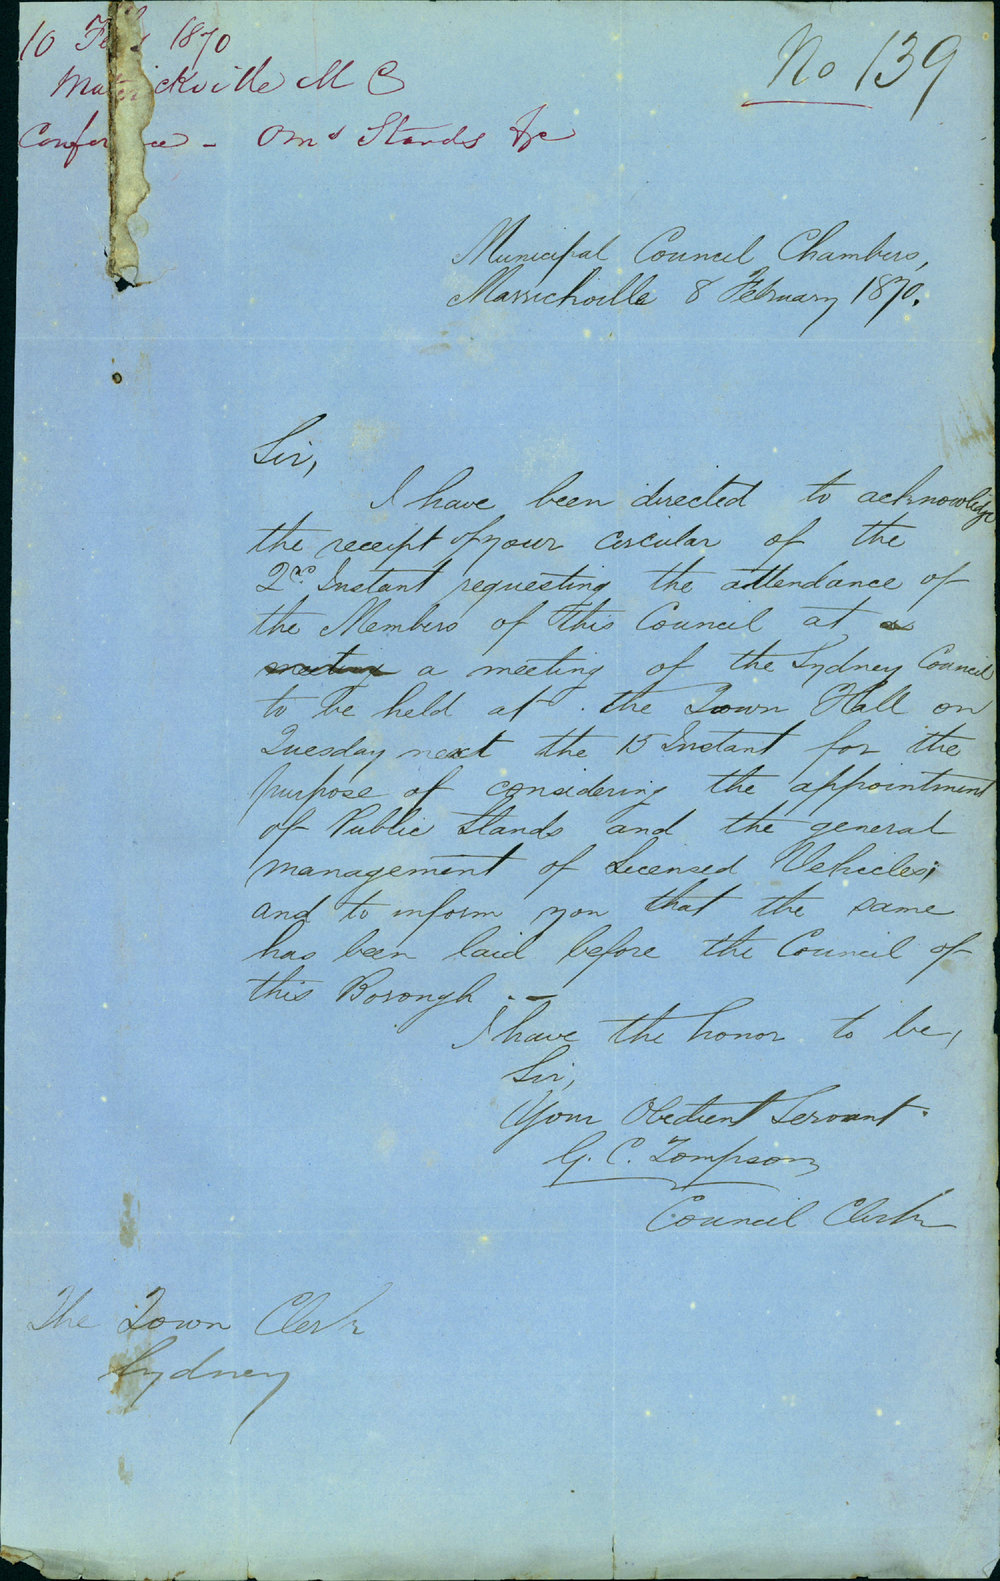 10 Feb 1870
Marrickville M C
Conference - Oms Stands &c
No 139
Municipal Council Chambers,
Marrickville 8 February 1870.
Sir,
I have been directed to acknowledge
the receipt of your circular of the
2nd Instant requesting the attendance of
the Members of this Council at a
meeting a meeting of the Sydney Council
to be held at the Town Hall on
Tuesday next the 15 Instant for the
purpose of considering the appointment
of Public Stands and the general
management of Licensed Vehicles;
and to inform you that the same
has been laid before the Council of
this Borough.—
I have the honor to be,
Sir,
Your Obedient Servant.
G. C. Tompson
Council Clerk
The Town Clerk
Sydney